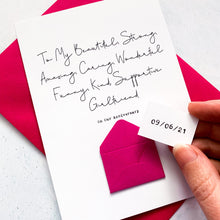 To My Beautiful, Strong,
Amazing, Caring, Wonderful
Funny, Kind, Supportive
Girlfriend
ON OUR ANNIVERSARY
09/06/21